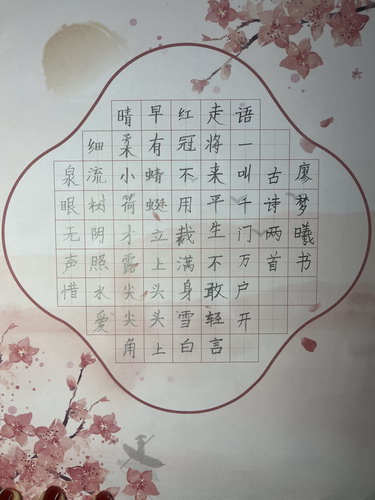 泉眼无声惜
细流树阴照水爱
晴柔小荷才露尖尖角
早有蜻蜓立上头头上
红冠不用裁满身雪白
走将来平生不敢轻言
语一叫千门万户开
古诗两首
廖梦曦书